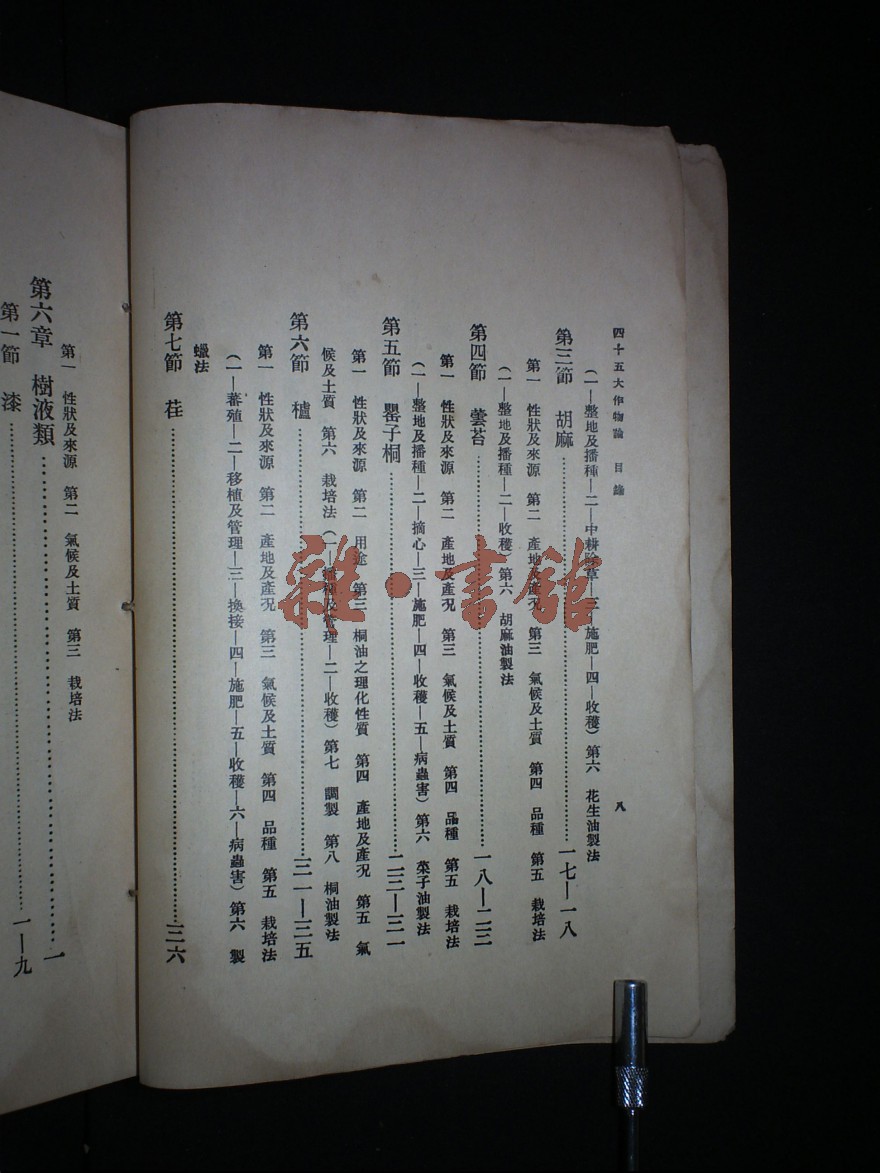 四十五大作物論　目錄　八
（一—整地及播種—二—中耕除草—三—施肥—四—收穫）第六　花生油製法
第三節　胡麻……一七—一八
第一　性狀及來源　第二　產地及產況　第三　氣候及土質　第四　品種　第五　栽培法
（一—整地及播種—二—收穫）第六　胡麻油製法
第四節　蕓苔……一八—二三
第一　性狀及來源　第二　產地及產況　第三　氣候及土質　第四　品種　第五　栽培法
（一—整地及播種—二—摘心—三—施肥—四—收穫—五—病蟲害）第六　菜子油製法
第五節　罌子桐……二三—三一
第一　性狀及來源　第二　用途　第三　桐油之理化性質　第四　產地及產況　第五　氣
候及土質　第六　栽培法（一—播種及管理—二—收穫）第七　調製　第八　桐油製法
第六節　櫨……三一—三五
第一　性狀及來源　第二　產地及產況　第三　氣候及土質　第四　品種　第五　栽培法
（一—蕃殖—二—移植及管理—三—換接—四—施肥—五—收穫—六—病蟲害）第六　製
蠟法
第七節　荏……三六
第一　性狀及來源　第二　氣候及土質　第三　栽培法
第六章　樹液類……一
第一節　漆……一—九
雜·書館